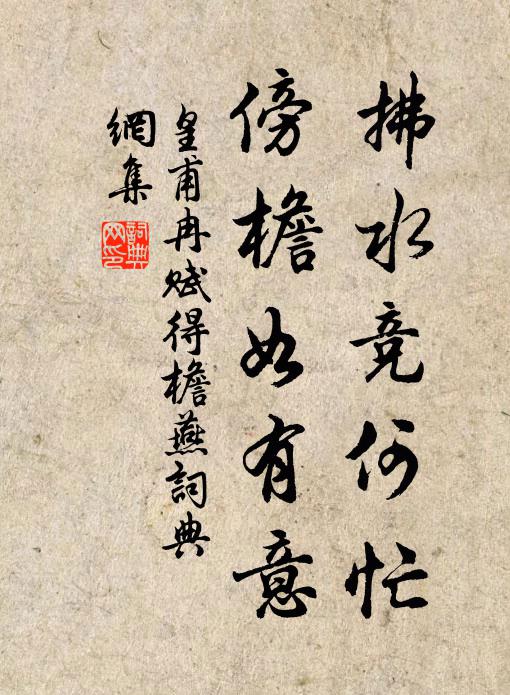 拂水竞何忙
傍檐如有意
皇甫冉赋得檐燕詞典
網集
詞典
网印